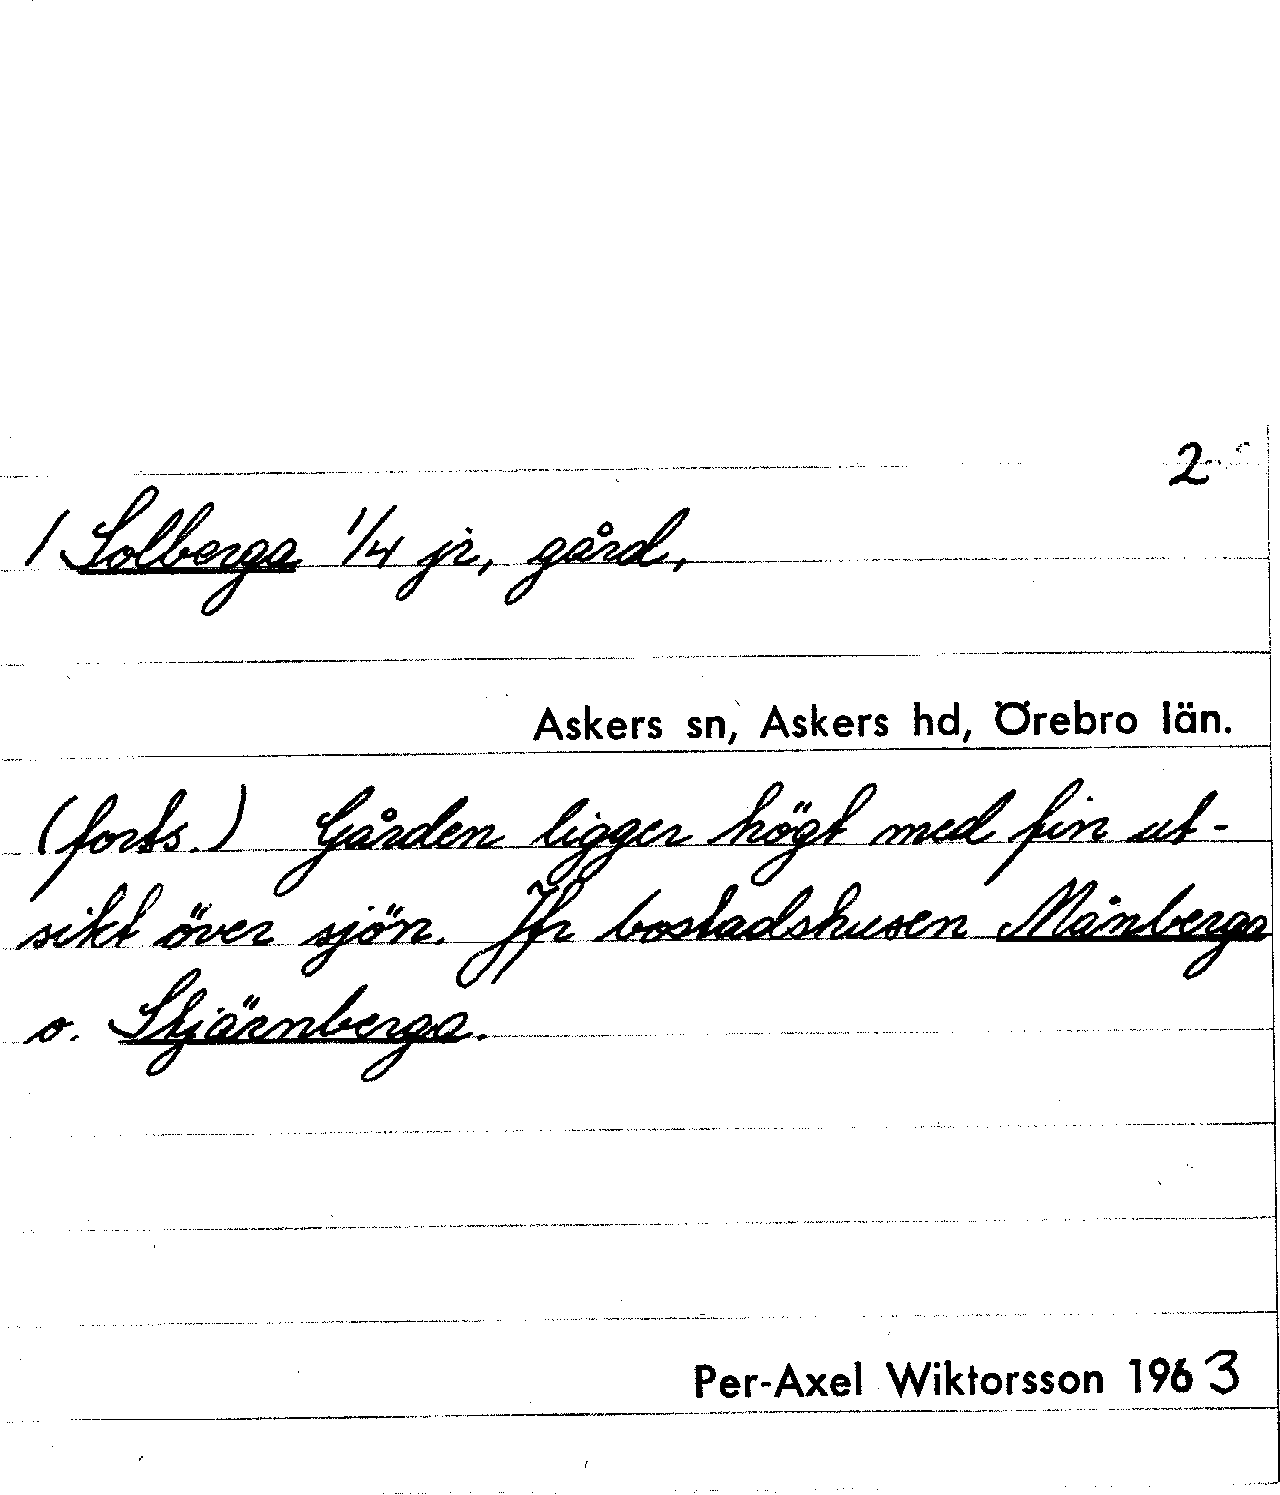 2
/ Solberga 1/4 jr, gård,
Askers sn, Askers hd, Örebro län.
(forts.) Gården ligger högt med fin ut-
sikt över sjön. Jfr bostadshusen Månberga
o. Stjärnberga.
Per-Axel Wiktorsson 1963